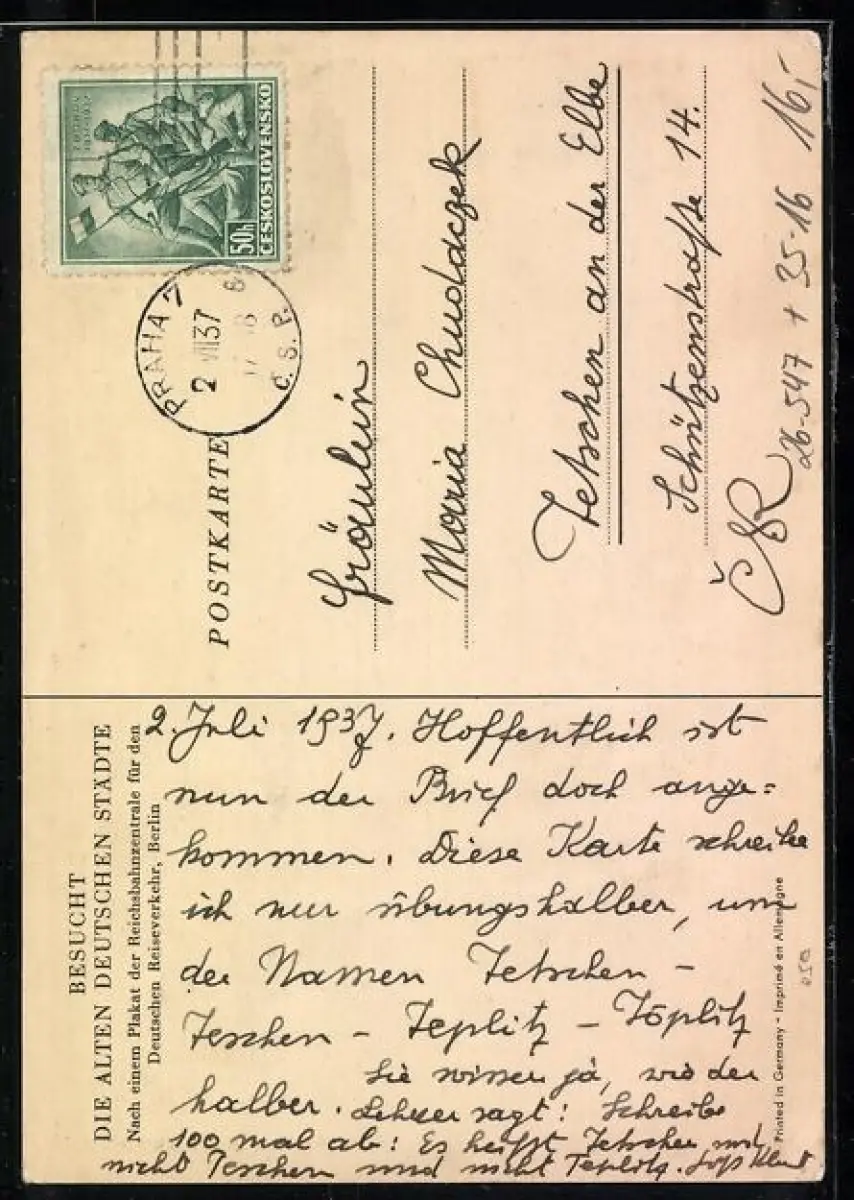 50h
ČESKOSLOVENSKO
PRAHA 7
2 VII 37
Č. S. R.
POSTKARTE
Fräulein
Maria Chudaczek
Tetschen an der Elbe
Schützenstraße 14.
ČSR
26-547 + 35-16 16,-
BESUCHT
DIE ALTEN DEUTSCHEN STÄDTE
Nach einem Plakat der Reichsbahnzentrale für den
Deutschen Reiseverkehr, Berlin
2. Juli 1937. Hoffentlich ist
nun der Brief doch ange=
kommen. Diese Karte schreibe
ich nur übungshalber, um
der Namen Tetschen –
Teschen – Teplitz – Töplitz
halber. Sie wissen ja, wie der
Lehrer sagt: Schreibe
100 mal ab: Es heißt Tetschen und
nicht Teschen und nicht Teplitz.
Printed in Germany - Imprimé en Allemagne